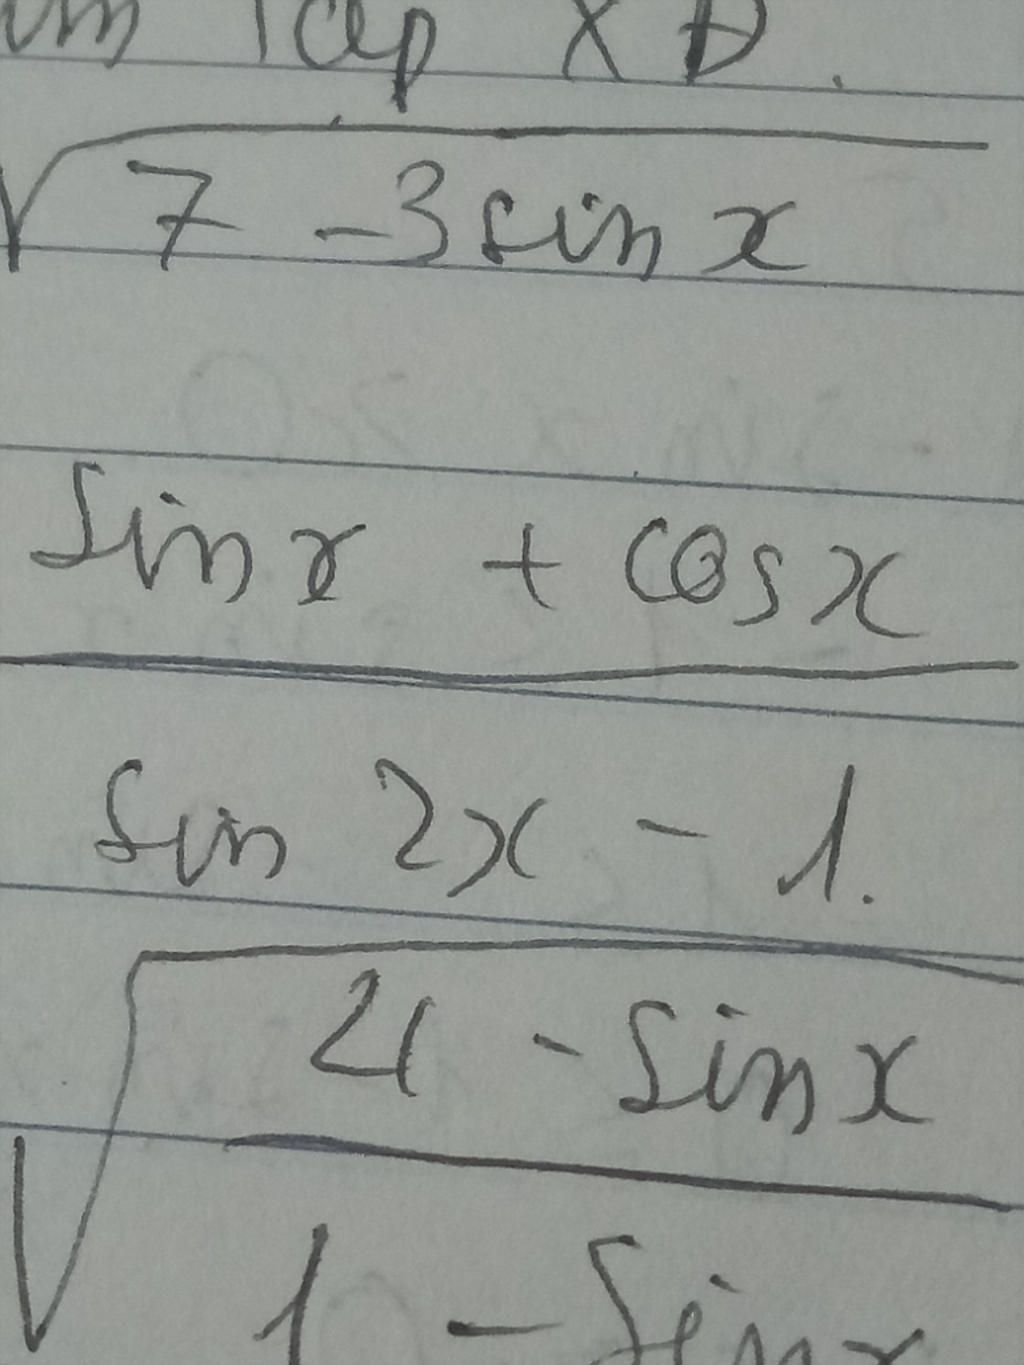 Tập XĐ.
√7 - 3 sin x
sin x + cos x
sin 2x - 1.
√4 - sin x
1 - sin x